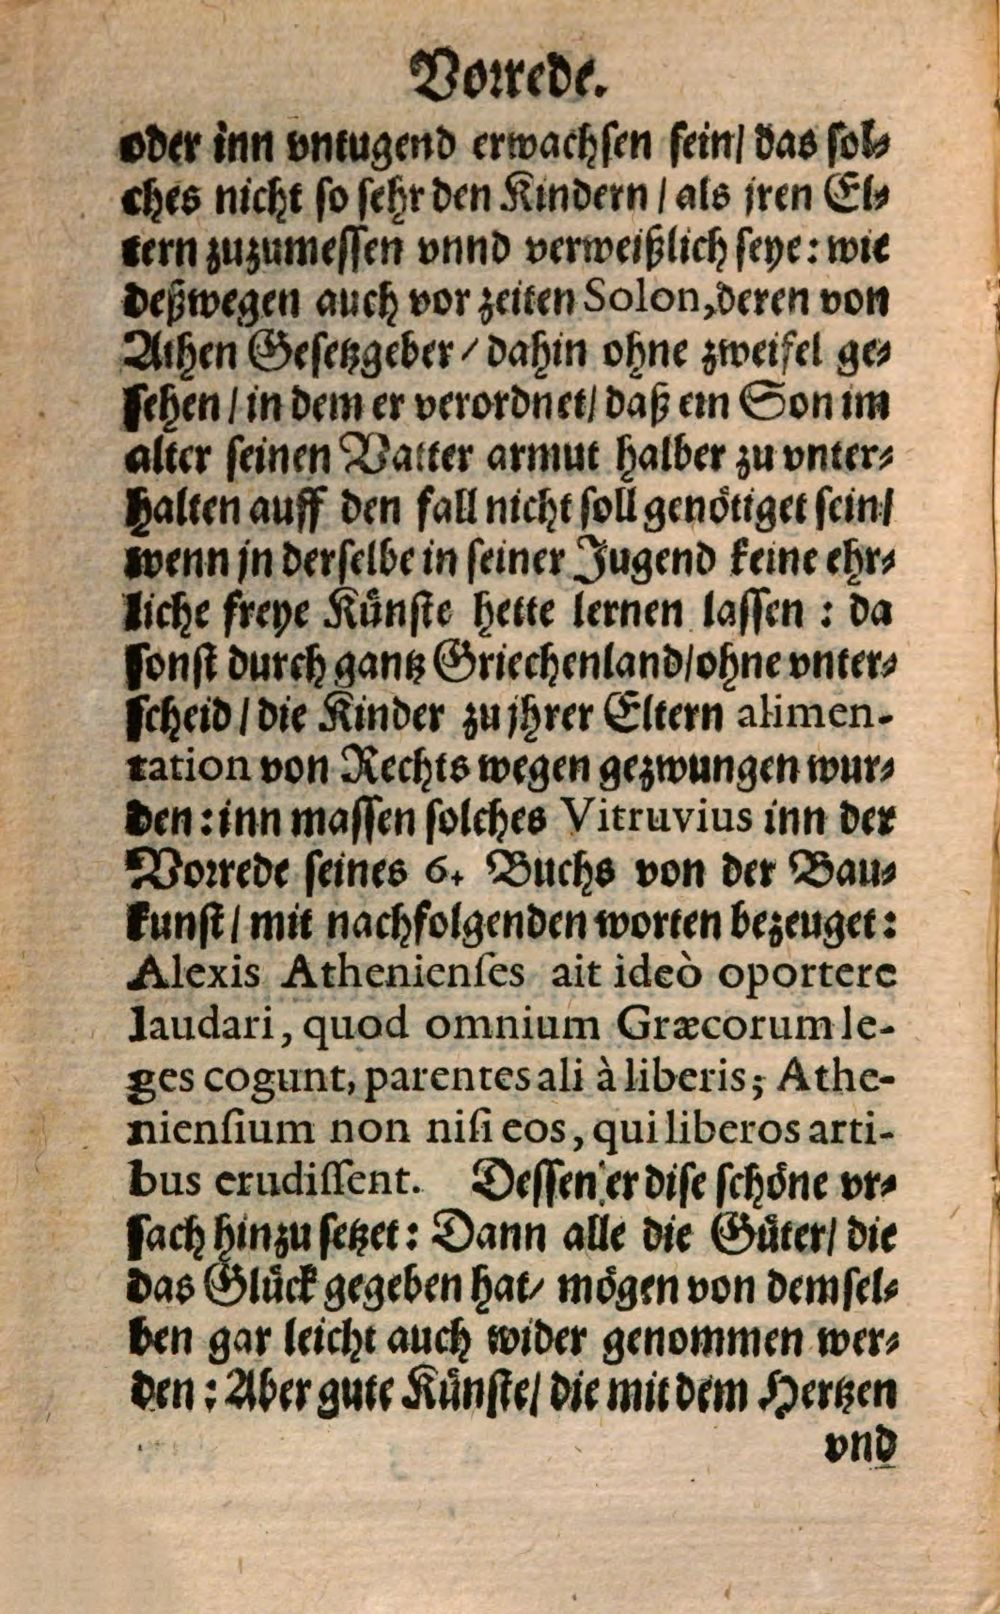 Vorrede.
oder inn vntugend erwachsen sein/ das sol-
ches nicht so sehr den Kindern / als jren El-
tern zuzumessen vnnd verweißlich seye: wie
deßwegen auch vor zeiten Solon, deren von
Athen Gesetzgeber / dahin ohne zweifel ge-
sehen / in dem er verordnet/ daß ein Son im
alter seinen Vatter armut halber zu vnter-
halten auff den fall nicht soll genötiget sein/
wenn jn derselbe in seiner Jugend keine ehr-
liche freye Künste hette lernen lassen : da
sonst durch gantz Griechenland/ ohne vnter-
scheid / die Kinder zu jhrer Eltern alimen-
tation von Rechts wegen gezwungen wur-
den: inn massen solches Vitruvius inn der
Vorrede seines 6. Buchs von der Bau-
kunst / mit nachfolgenden worten bezeuget:
Alexis Athenienſes ait ideò oportere
laudari, quod omnium Græcorum le-
ges cogunt, parentes ali à liberis; Athe-
nienſium non niſi eos, qui liberos arti-
bus erudiſſent. Dessen er dise schöne vr-
sach hinzu setzet: Dann alle die Güter/ die
das Glück gegeben hat/ mögen von demsel-
ben gar leicht auch wider genommen wer-
den: Aber gute Künste/ die mit dem Hertzen
vnd